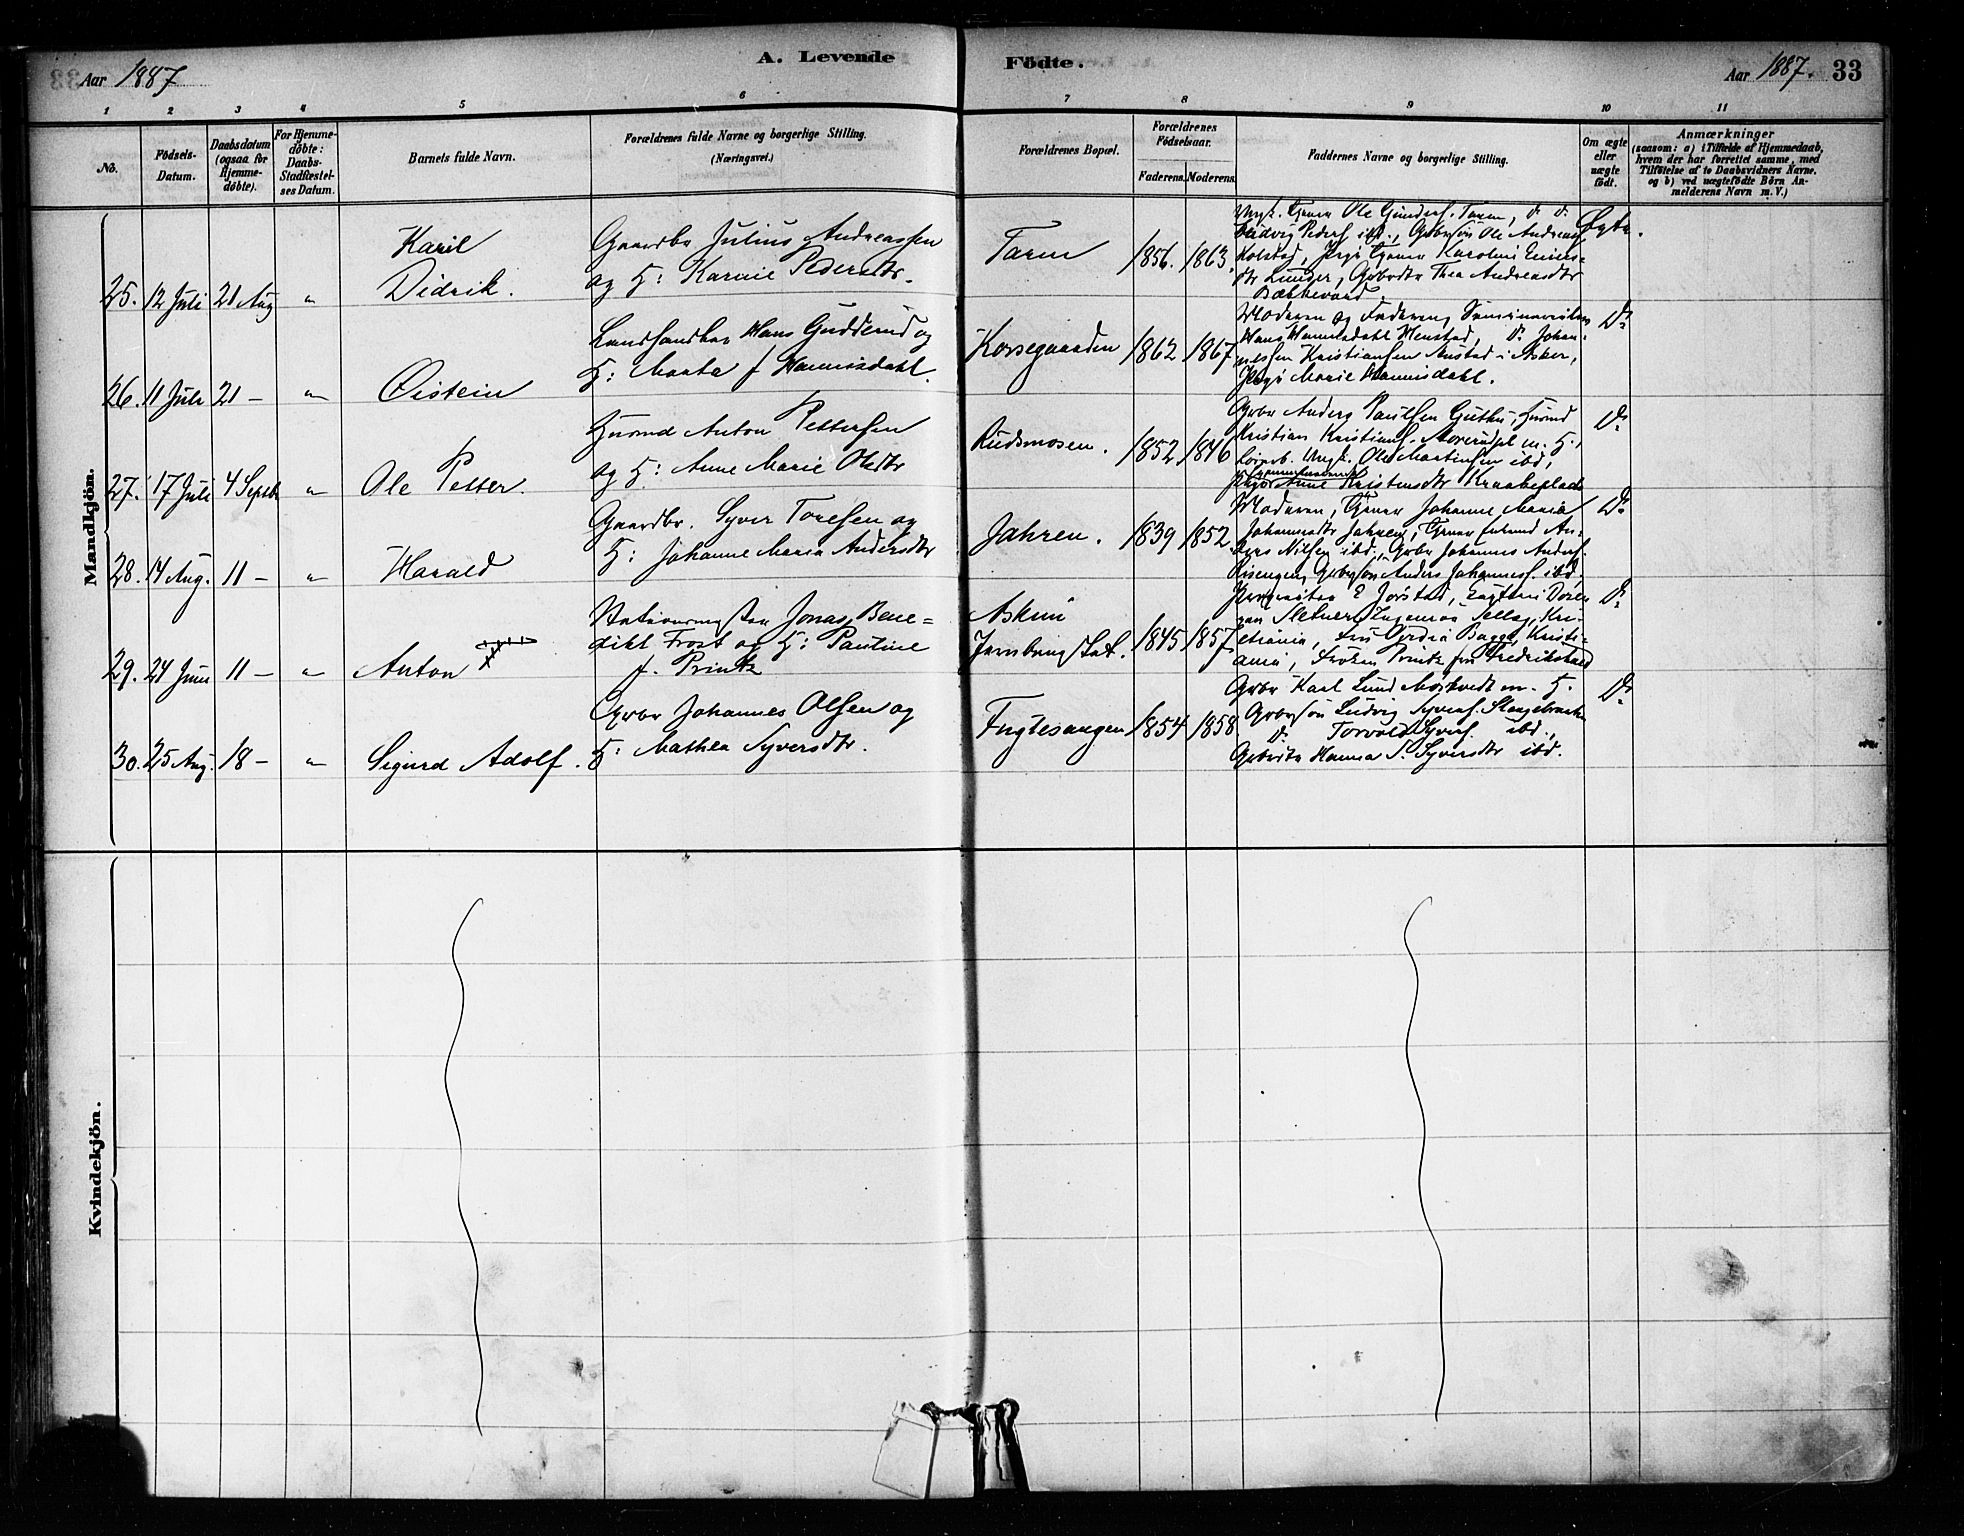 A. Levende
Födte.
Aar 1887
Aar 1887. 33
1 2 3 4 5 6 7 8 9 10 11
No.
Födsels-
Datum.
Daabsdatum
(ogsaa for
Hjemme-
döbte).
For Hjemme-
döbte:
Daabs-
Stadfæstel-
ses Datum.
Barnets fulde Navn.
Forældrenes fulde Navne og borgerlige Stilling.
(Næringsvei.)
Forældrenes Bopæl.
Forældrenes
Födselsaar.
Faderens. Moderens.
Faddernes Navne og borgerlige Stilling.
Om ægte
eller
uægte
født.
Anmærkninger
(saasom: a) i Tilfælde af Hjemmedaab,
hvem der har forrettet samme, med
Tilföielse af to Daabsvidners Navne,
og b) ved uægtefödte Börn An-
melderens Navn m. V.)
Mandkjön.
25. 12 Juli 21 Aug "
Karil
Didrik.
Gaardbr Julius Andreassen
og H: Karnie Pedersdtr.
Taren
1856. 1863.
Ungk. Ole Gunders. Taren, do do
Ludvig Peders. ibd., Gbrsøn Ole Andreas
Kolstad, Pige Karoline
Lunder, Gbrdtr Thea Andreasdtr
Ægte.
26. 11 Juli 21 — "
Øistein
Landhandler Hans Gudderud og
H: Marta f Hannisdahl.
Korsegaarden
1862 1867
Moderen og Faderen, Seminarist
Hans Hannisdahl Henstad, do Johan-
nessen Kristiansen Austad i Asker,
Pige Marie Hannisdahl.
Do
27. 17 Juli 4 Septb "
Ole Petter.
Husmd Anton Pettersen
og H: Anne Marie Olsdtr
Rudsmosen.
1852 1846
Gbr Anders Paulsen Guthu, Husmd
Kristian Kristians. m. H.,
Ungk. Ole Martinsen ibd,
Anne Kristensdtr Kraabøplads
Do
28. 14 Aug. 11 — "
Harald
Gaardbr. Syver Toresen og
H: Johanne Maria Andersdtr
Jahren.
1839 1852.
Moderen, Johanne Maria
Johannesdtr Jahren, An-
ders Nilsen ibd., Gbr Johannes Anders.
Risengen, Gbrsøn Anders Johanness. ibd.
Do
29. 24 Juni 11 — "
Anton
Stationsmester Jonas Bene=
dikt Frost og H: Pauline
f. Printz
Askim
Jernbanestat.
1845 1857
E Jørstad,
Sletner, Kri-
stiania, Fru Bagge, Kristi-
ania, Frøken Printz fra Fredrikstad
Do
30. 25 Aug. 18 — "
Sigurd Adolf.
Gbr Johannes Olsen og
H: Mathea Syversdtr.
Fuglesangen
1854 1858
Gbr Karl Lund m. H.
Gbrsøn Ludvig Syvers.
Do Torvald Syvers. ibd.,
Gbrdtr Hanna S. Syversdtr ibd.
Do
Kvindekjön.